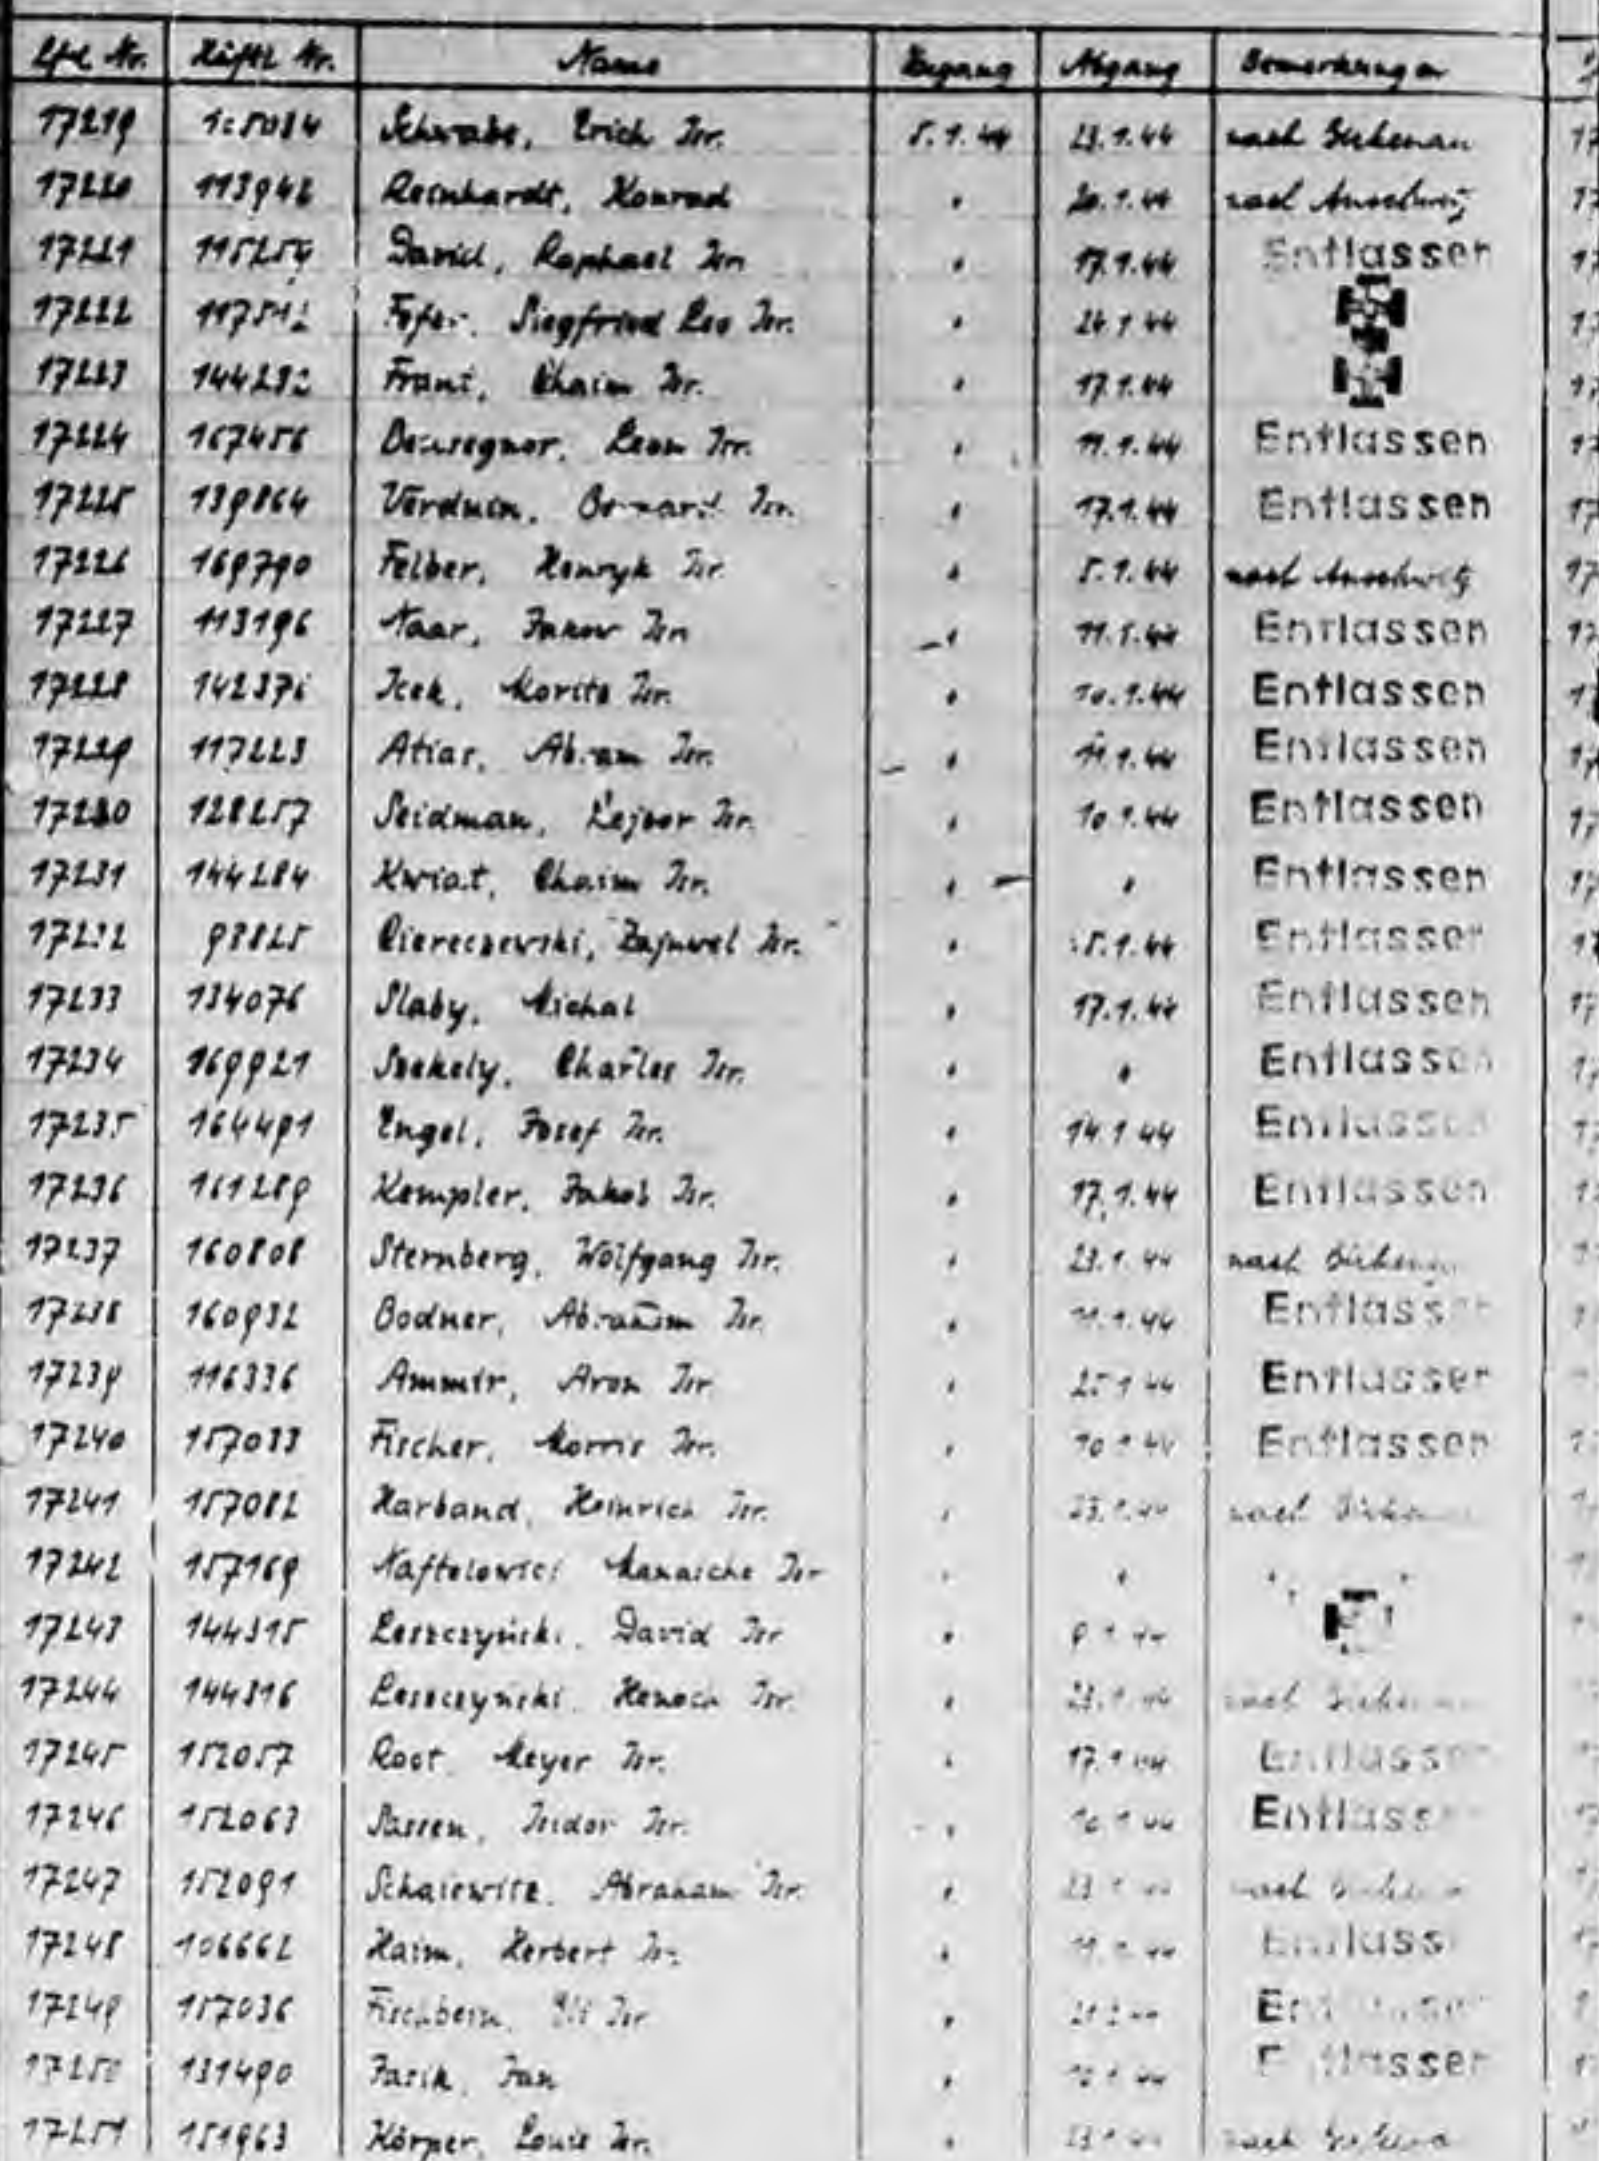 Lfd. Nr. Häftl. Nr. Name Zugang Abgang Bemerkungen
17219 Schwabe, Erich Isr. 5.1.44 23.1.44 nach Birkenau
17220 113942 Reinhardt, Konrad " 20.1.44 nach Auschwitz
17221 115254 David, Raphael Isr. " 17.1.44 Entlassen
17222 Siegfried Leo Isr. " 24.1.44
17223 144232 Chaim Isr. " 17.1.44
17224 167456 Leon Isr. " 11.1.44 Entlassen
17225 139864 Verduin, Isr. " 17.1.44 Entlassen
17226 169790 Felber, Henryk Isr. " 5.1.44 nach Auschwitz
17227 113196 Naar, Isr. " 11.1.44 Entlassen
17228 Icek, Moritz Isr. " 10.1.44 Entlassen
17229 117223 Atias, Abram Isr. " 11.1.44 Entlassen
17230 128257 Seidman, Isr. " 10.1.44 Entlassen
17231 144284 Kwiat, Chaim Isr. " " Entlassen
17232 98825 Isr. " Entlassen
17233 134076 Slaby, Michal " 17.1.44 Entlassen
17234 169921 Szekely, Charles Isr. " " Entlassen
17235 164491 Engel, Josef Isr. " 14.1.44 Entlassen
17236 161289 Kempler, Jakob Isr. " 17.1.44 Entlassen
17237 160808 Sternberg, Wolfgang Isr. " 23.1.44 nach Birkenau
17238 160932 Bodner, Abraham Isr. " 11.1.44 Entlassen
17239 116336 Aron Isr. " 25.1.44 Entlassen
17240 157033 Fischer, Morris Isr. " 10.1.44 Entlassen
17241 157082 Harband, Heinrich Isr. " 23.1.44 nach Birkenau
17242 157169 Isr. " "
17243 144315 Leszczyński, David Isr. "
17244 144316 Leszczyński, Henoch Isr. " 23.1.44 nach Birkenau
17245 152057 Root, Meyer Isr. " 17.1.44 Entlassen
17246 152063 Sassen, Isidor Isr. " Entlassen
17247 152091 Abraham Isr. " 23.1.44 nach Birkenau
17248 106662 Haim, Herbert Isr. " Entlassen
17249 157036 Fischbein, Isr. "
17250 131490 Jan " Entlassen
17251 151963 Körper, Louis Isr. " 23.1.44 nach Birkenau